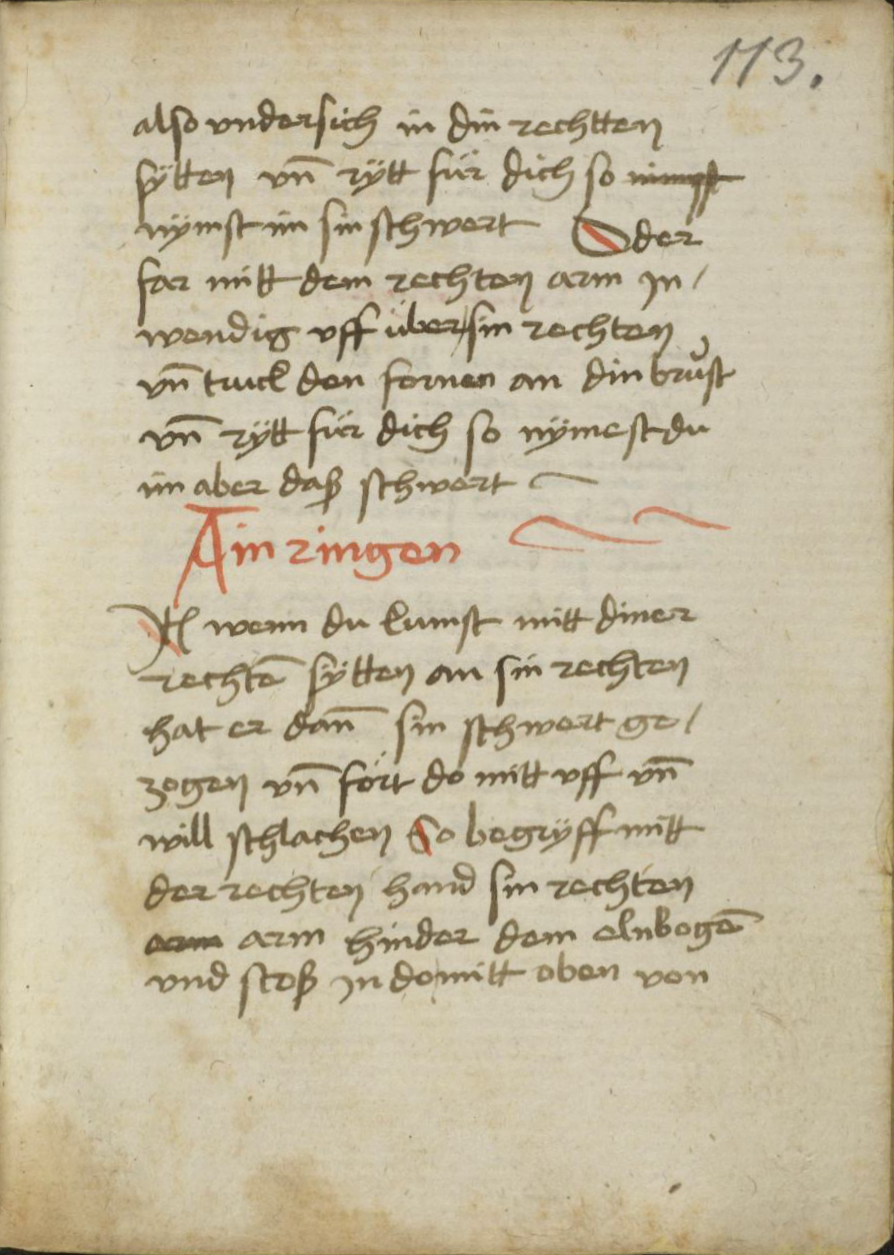 113.
also vndersich in din rechtten
sÿtten vn̄ rÿtt für dich so nimpst
nÿmst im sin schwert Oder
far mitt dem rechten arm In /
wendig vff über sin rechten
vn̄ truck den fornen an din brust
vn̄ rÿtt für dich so nÿmest du
im aber daß schwert
Ain ringen
Itl wenn du kumst mitt diner
rechtē sÿtten an sin rechten
hat er dan̄ sin schwert ge /
zogen vn̄ fört do mitt vff vn̄
will schlachen So begrÿff mitt
der rechten hand sin rechten
arm arm hinder dem elnbogē
vnd stoß In domitt oben von